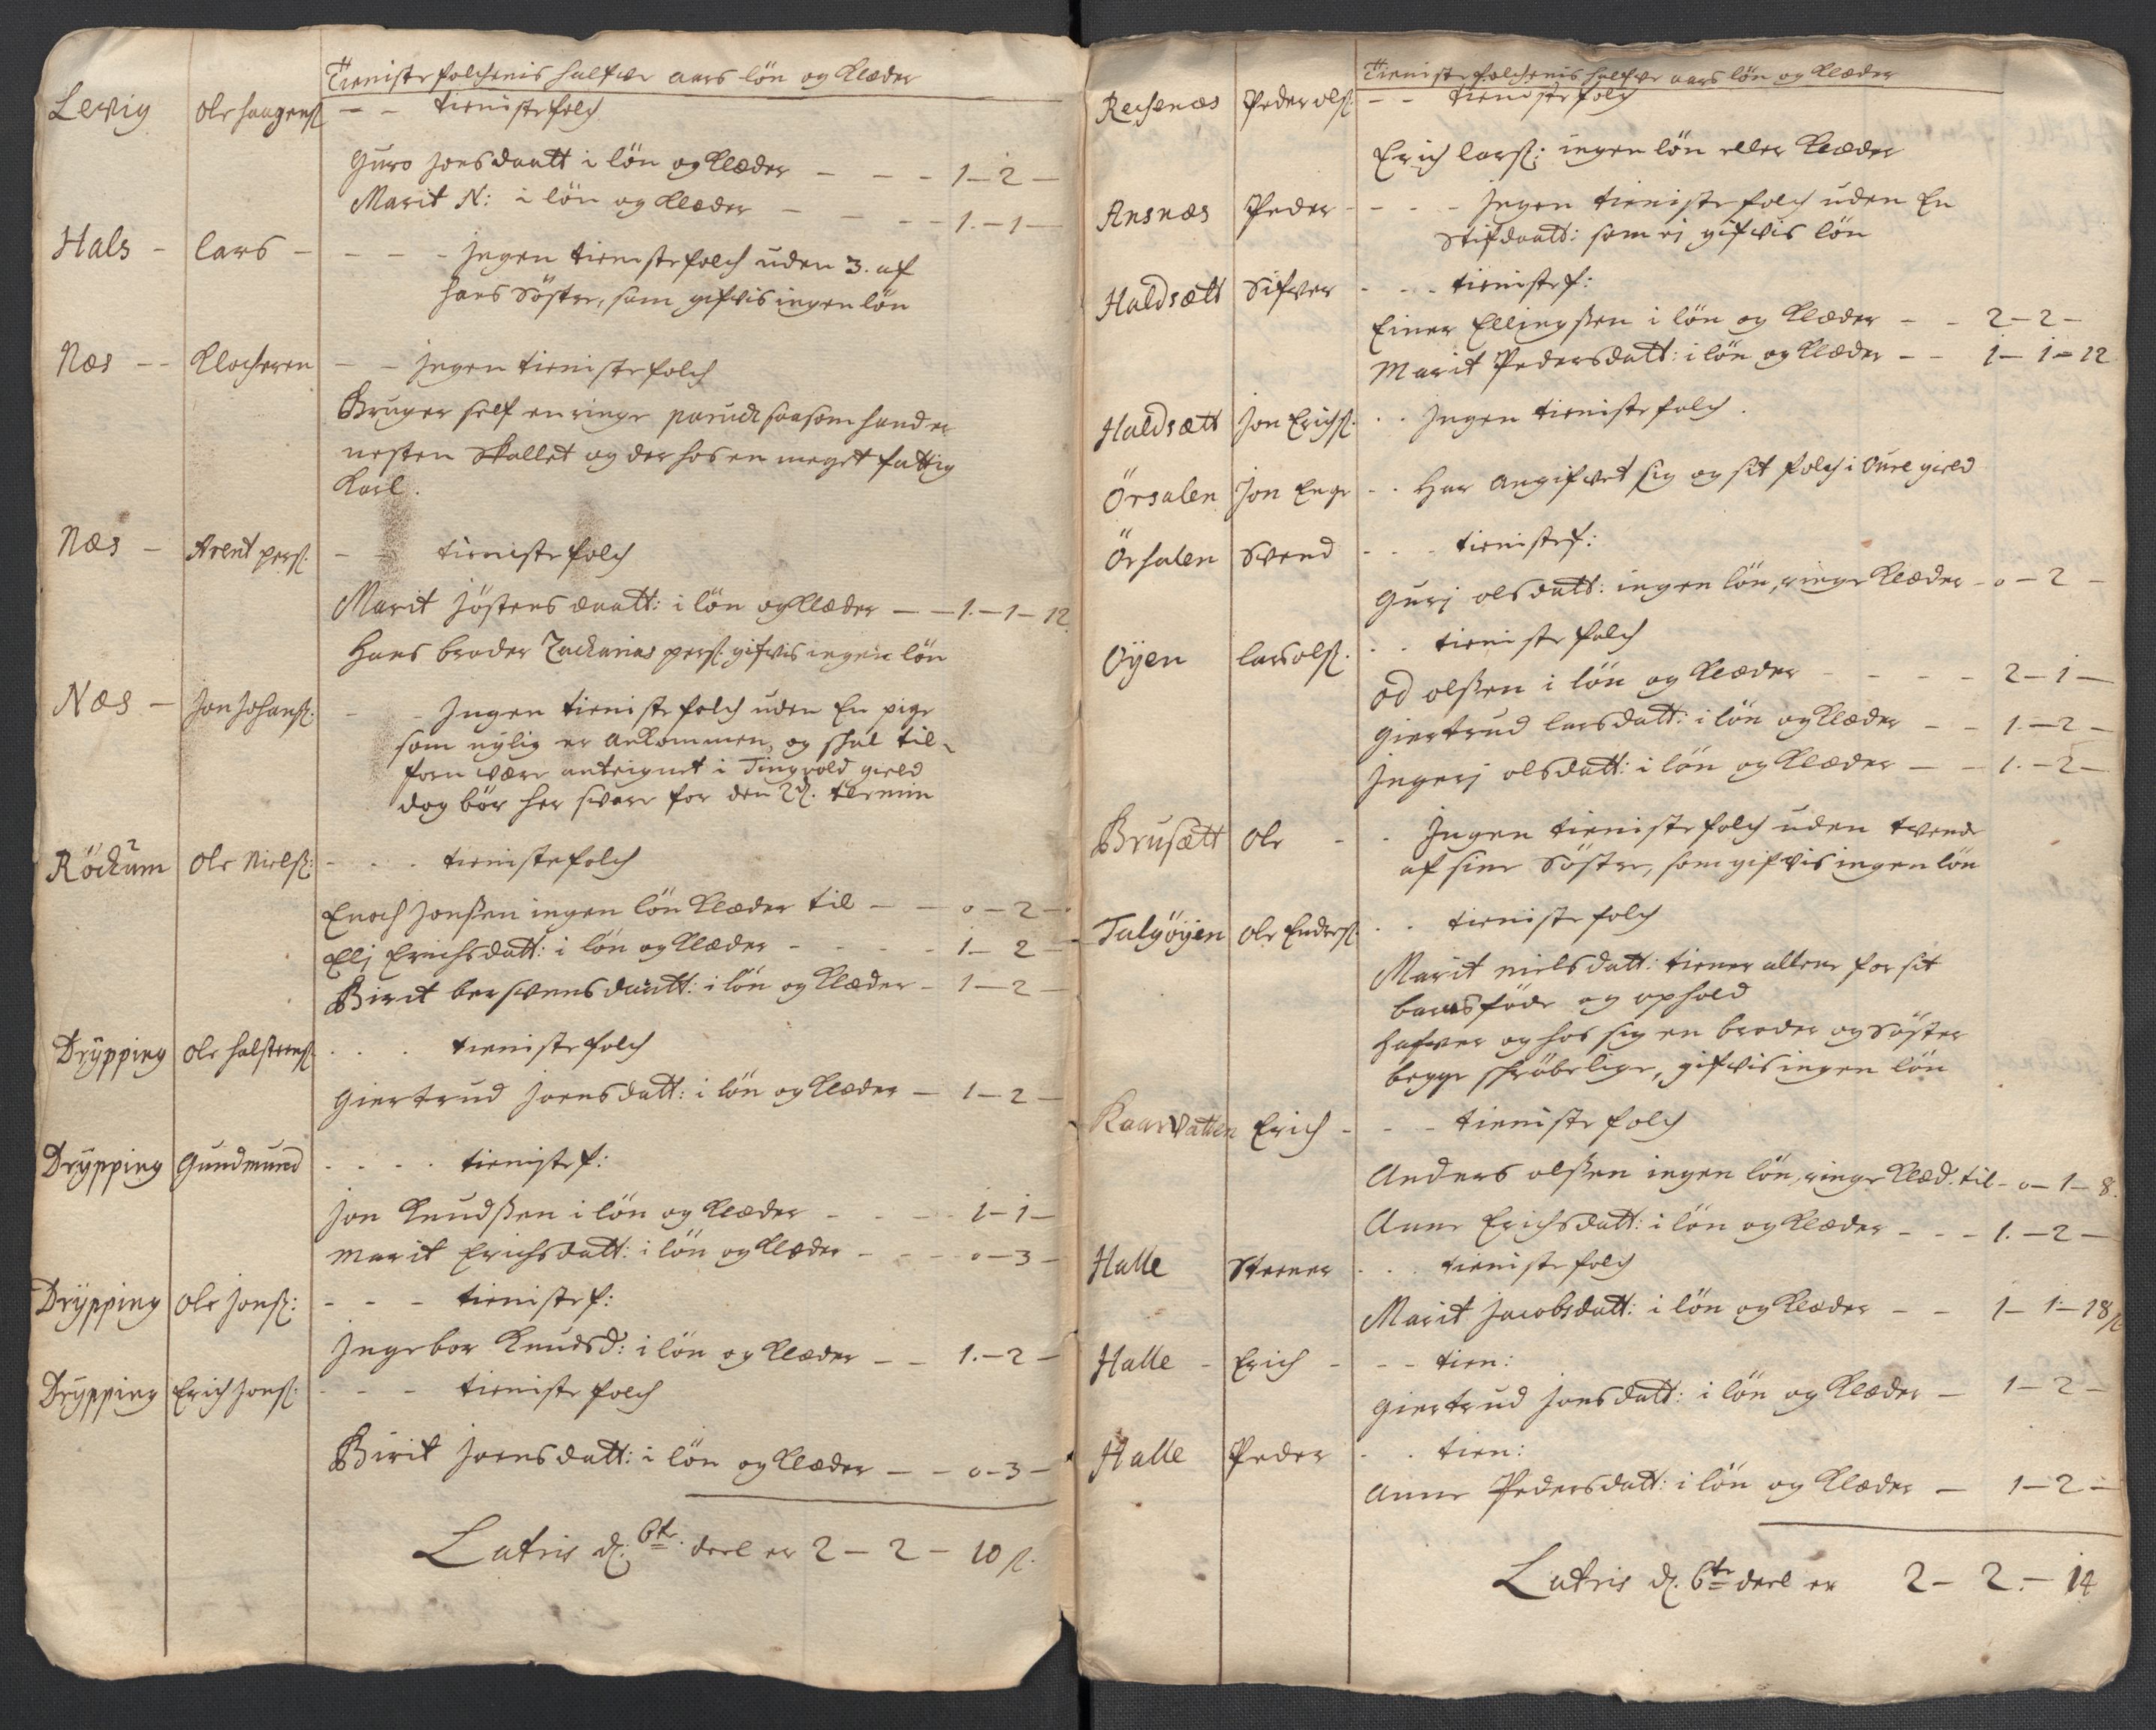 Tieniste folchenis halfve aars lön og Klæder
Levig Ole haagenß: - - tienistefolch
Guro Jonsdaatt i lön og Klæder - - - 1 - 2 -
Marit N: i lön og Klæder - - - - 1. - 1 -
Hals - Lars - - - - Ingen tienistefolch uden 3. af
hans Söstre, som gifvis ingen lön
Næs - - Klocheren - - Ingen tienistefolch
Bruger self en ringe paruck saasom hand er
nesten Skallet og der hos en meget fattig
Karl.
Næs - Arent persß: - - tieniste folch
Marit Jöstens daatt: i lön og Klæder - - 1. - 1 - 12
Hans broder Zacharias persß: gifvis ingen lön
Næs - Jon Johanß: - - Ingen tieniste folch uden En pige
som nylig er ankommen, og skal til-
forn være anteignet i Tingvold gield
dog bör her svare for den 2d. termin
Röckum Ole Nielß: - - - tienistefolch
Enoch Jonßen ingen lön Klæder til - - 0 - 2 -
Elj Erichsdatt: i lön og Klæder - - - - 1 - 2
Birit bersvensdaatt: i lön og Klæder - 1 - 2 -
Drÿpping Ole halsteenß: . . . tieniste folch
Giertrud Joensdatt: i lön og Klæder - 1 - 2 -
Drÿpping Gundmund - . . . tienistef:
Jon Knudßen i lön og Klæder - - - 1 - 1 -
Marit Erichsdatt: i lön og Klæder - - - 0 - 3 -
Drÿpping Ole Jonß: - - - tienistef:
Ingebor Knudsd: i lön og Klæder - - 1. - 2 -
Drÿpping Erich Jonß: - - - tieniste folch
Birit Joensdatt: i lön og Klæder - - 0 - 3 -
Latris d: 6te deel er 2 - 2 - 10 ß.
Tieniste folchenis halfve aars lön og Klæder
Rechenæs Peder olß: - - tieniste folch
Erich larß: ingen lön eller Klæder
Ansnæs Peder - - - - Ingen tieniste folch uden En
Stifdaatt: som ej gifvis lön
Haldsætt Sifver - - - tienistef:
Einer Ellingßen i lön og Klæder - - 2 - 2 -
Marit Pedersdatt: i lön og Klæder - - 1 - 1 - 12
Haldsætt Jon Erichß: . . Ingen tieniste folch.
Örsalen Jon Enge - . Har Angifvet sig og sit folch i Oure gield
Örsalen Svend - . - tienistef:
Gurj olsdatt: ingen lön, ringe Klæder - 0 - 2 -
Oÿen Lars olß: . . tieniste folch
od olßen i lön og Klæder - - - - 2 - 1 -
Giertrud larsdatt: i lön og Klæder - - 1. - 2 -
Ingerj olsdatt: i lön og Klæder - - 1. - 2 -
Brusætt Ole - . Ingen tieniste folch uden tvende
af sine Söstre, som gifvis ingen lön
Talgöÿen Ole Enderß: . . tieniste folch
Marit nielsdatt: tiener allene for sit
barns föde og ophold
hafver og hos sig en broder og Söster
begge skröbelige, gifvis ingen lön
Kaarvatten Erich - - - tieniste folch
Anders olßen ingen lön, ringe Klæd. til - 0 - 1 - 8.
Anne Erichsdatt: i lön og Klæder - - - 1. - 2 -
Halle Steener . . . tieniste folch
Marit Jacobsdatt: i lön og Klæder - - 1 - 1 - 18 ß
Halle - Erich - - - tien:
Giertrud Jonsdatt: i lön og Klæder - 1 - 2 -
Halle Peder . . tien:
Anne Pedersdatt: i lön og Klæder - 1 - 2 -
Latris d. 6te deel er 2 - 2. - 14